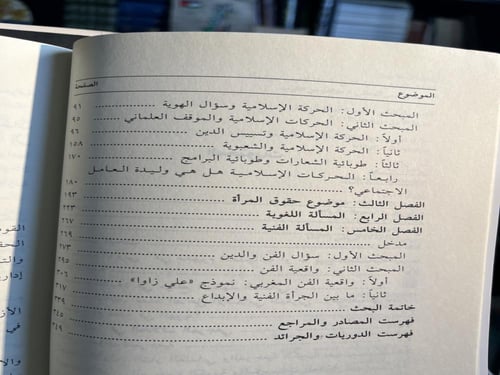 الموضوع الصفحة
المبحث الأول: الحركة الإسلامية وسؤال الهوية ٩١
المبحث الثاني: الحركات الإسلامية والموقف العلماني ٩٥
أولاً: الحركة الإسلامية وتسييس الدين ٩٦
ثانياً: الحركة الإسلامية والشعبوية ١٥٨
ثالثاً: طوبائية الشعارات وطوبائية البرامج ١٧٠
رابعاً: الحركات الإسلامية هل هي وليدة العامل
الاجتماعي؟ ١٨٠
الفصل الثالث: موضوع حقوق المرأة ١٩٣
الفصل الرابع: المسألة اللغوية ٢٢٣
الفصل الخامس: المسألة الفنية ٢٦٧
مدخل ٢٦٩
المبحث الأول: سؤال الفن والدين ٢٧٣
المبحث الثاني: واقعية الفن ٢٩٥
أولاً: واقعية الفن المغربي: نموذج «علي زاوا» ٣٠٦
ثانياً: ما بين الجرأة الفنية والإبداع ٣١٧
خاتمة البحث ٣٣٩
فهرست المصادر والمراجع ٣٤٥
فهرست الدوريات والجرائد ٣٤٩